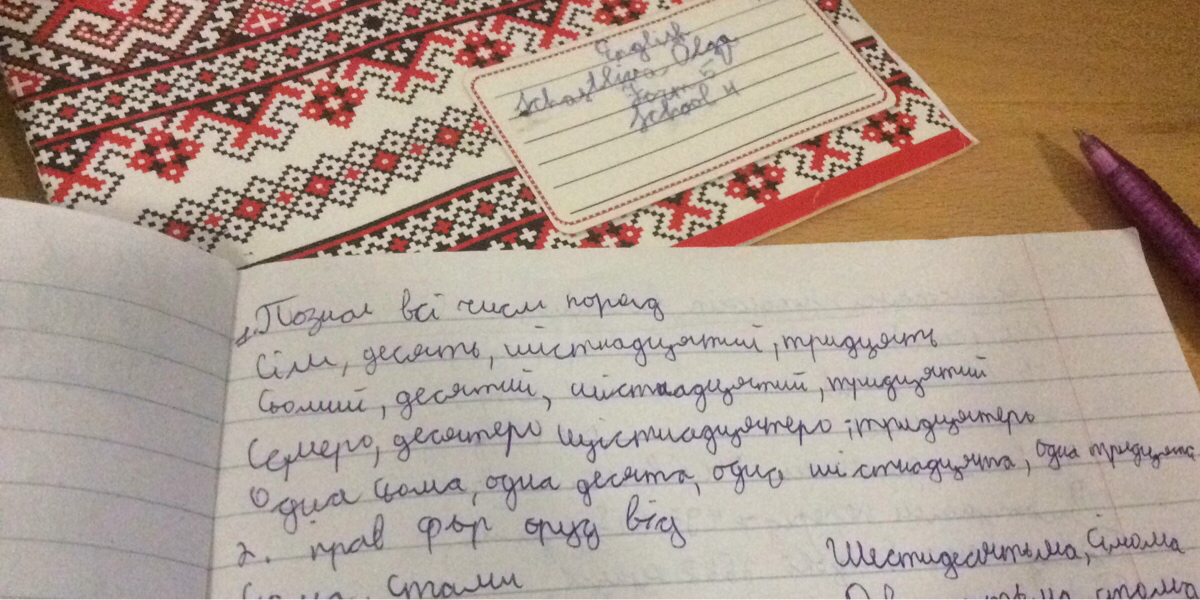 English
Schastliva Olga
Form 5
School 4
1. Познач всі числ поряд
Сім, десять, шістнадцятий, тридцять
Сьомий, десятий, шістнадцятий, тридцятий
Семеро, десятеро шістнадцятеро, тридцятеро
Одна сьома, одна десята, одна шістнадцята, одна тридцята
2. прав фор оруд від
Шестидесятьма, сімома
стами
стома